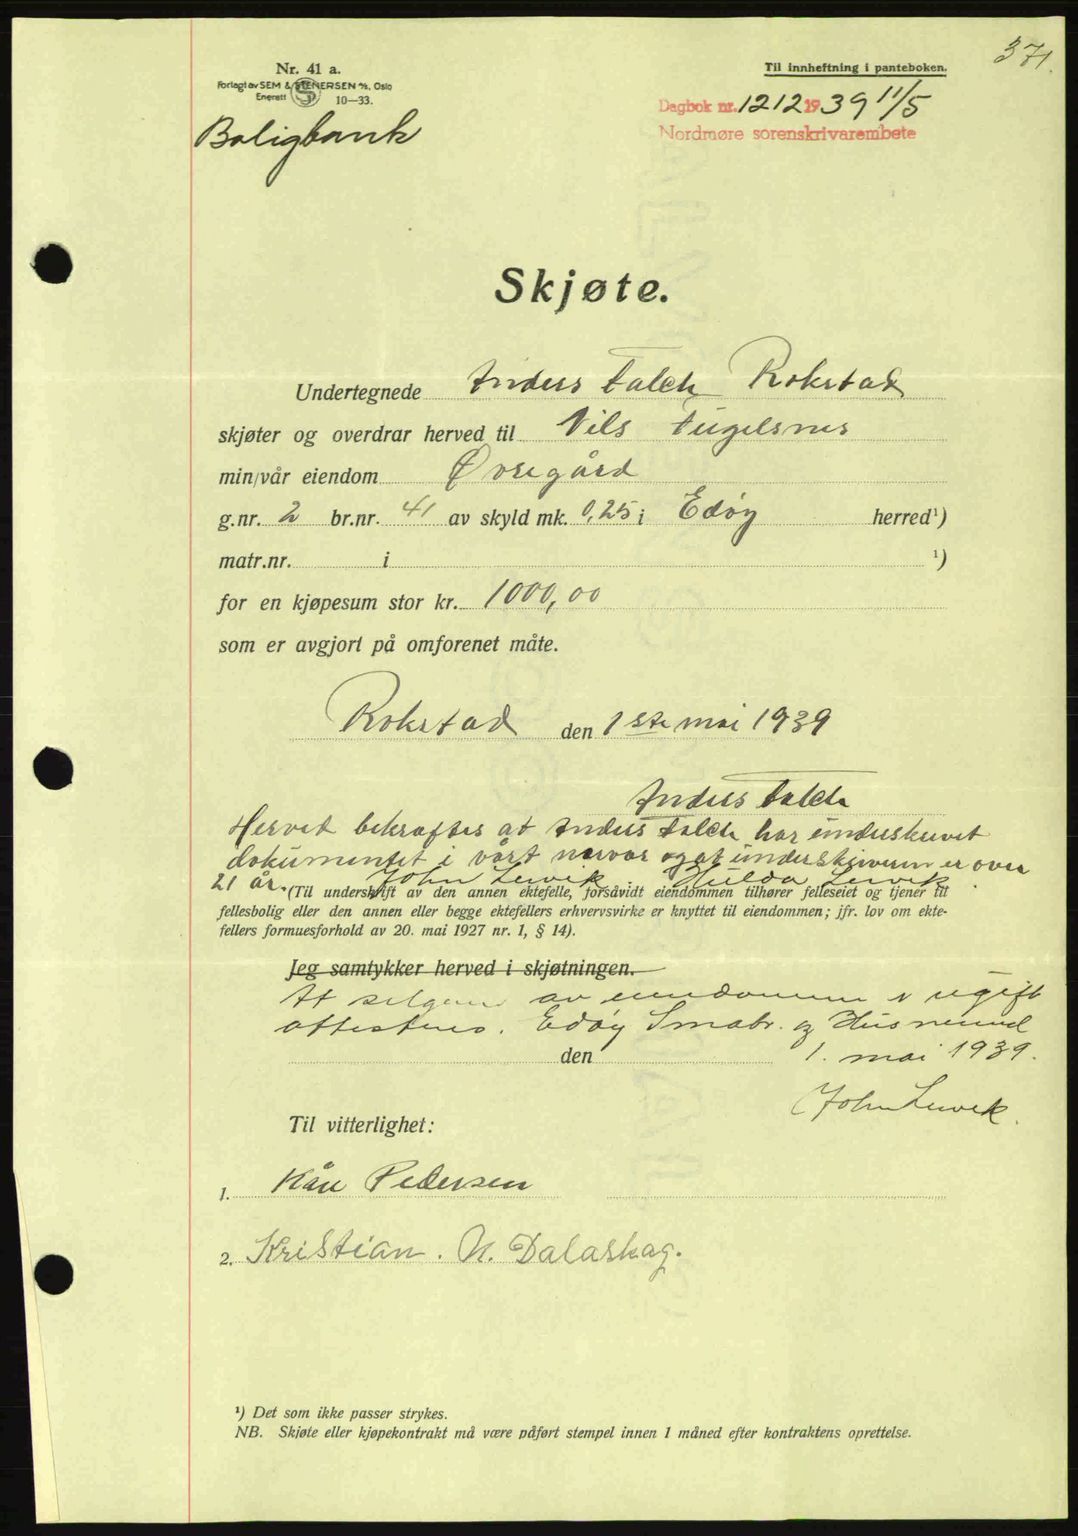 371.
Nr. 41 a.
Forlagt av SEM & STENERSEN A/S, Oslo
Enerett S 10—33.
Til innheftning i panteboken.
Dagbok nr. 1212 1939 11/5
Nordmøre sorenskrivarembete
Boligbank
Skjøte.
Undertegnede Anders Falch Rokstad
skjøter og overdrar herved til Nils Fugelsnes
min/vår eiendom Øvregård
g.nr. 2 br.nr. 41 av skyld mk. 0,25 i Edøy herred¹)
matr.nr. i ¹)
for en kjøpesum stor kr. 1000,00
som er avgjort på omforenet måte.
Rokstad den 1ste mai 1939
Anders Falch
Herved bekreftes at Anders Falch har underskrevet
dokumentet i vårt nærvær og at underskriveren er over
21 år. John Lervik. Hulda Lervik.
(Til underskrift av den annen ektefelle, forsåvidt eiendommen tilhører felleseiet og tjener til
fellesbolig eller den annen eller begge ektefellers erhvervsvirke er knyttet til eiendommen; jfr. lov om ekte-
fellers formuesforhold av 20. mai 1927 nr. 1, § 14).
Jeg samtykker herved i skjøtningen.
At selgeren av eiendommen er ugift
attesteres. Edøy Småbr. og Husmannsl
den 1. mai 1939.
John Lervik.
Til vitterlighet:
1. Kåre Pedersen
2. Kristian. N. Dalaskag.
¹) Det som ikke passer strykes.
NB. Skjøte eller kjøpekontrakt må være påført stempel innen 1 måned efter kontraktens oprettelse.